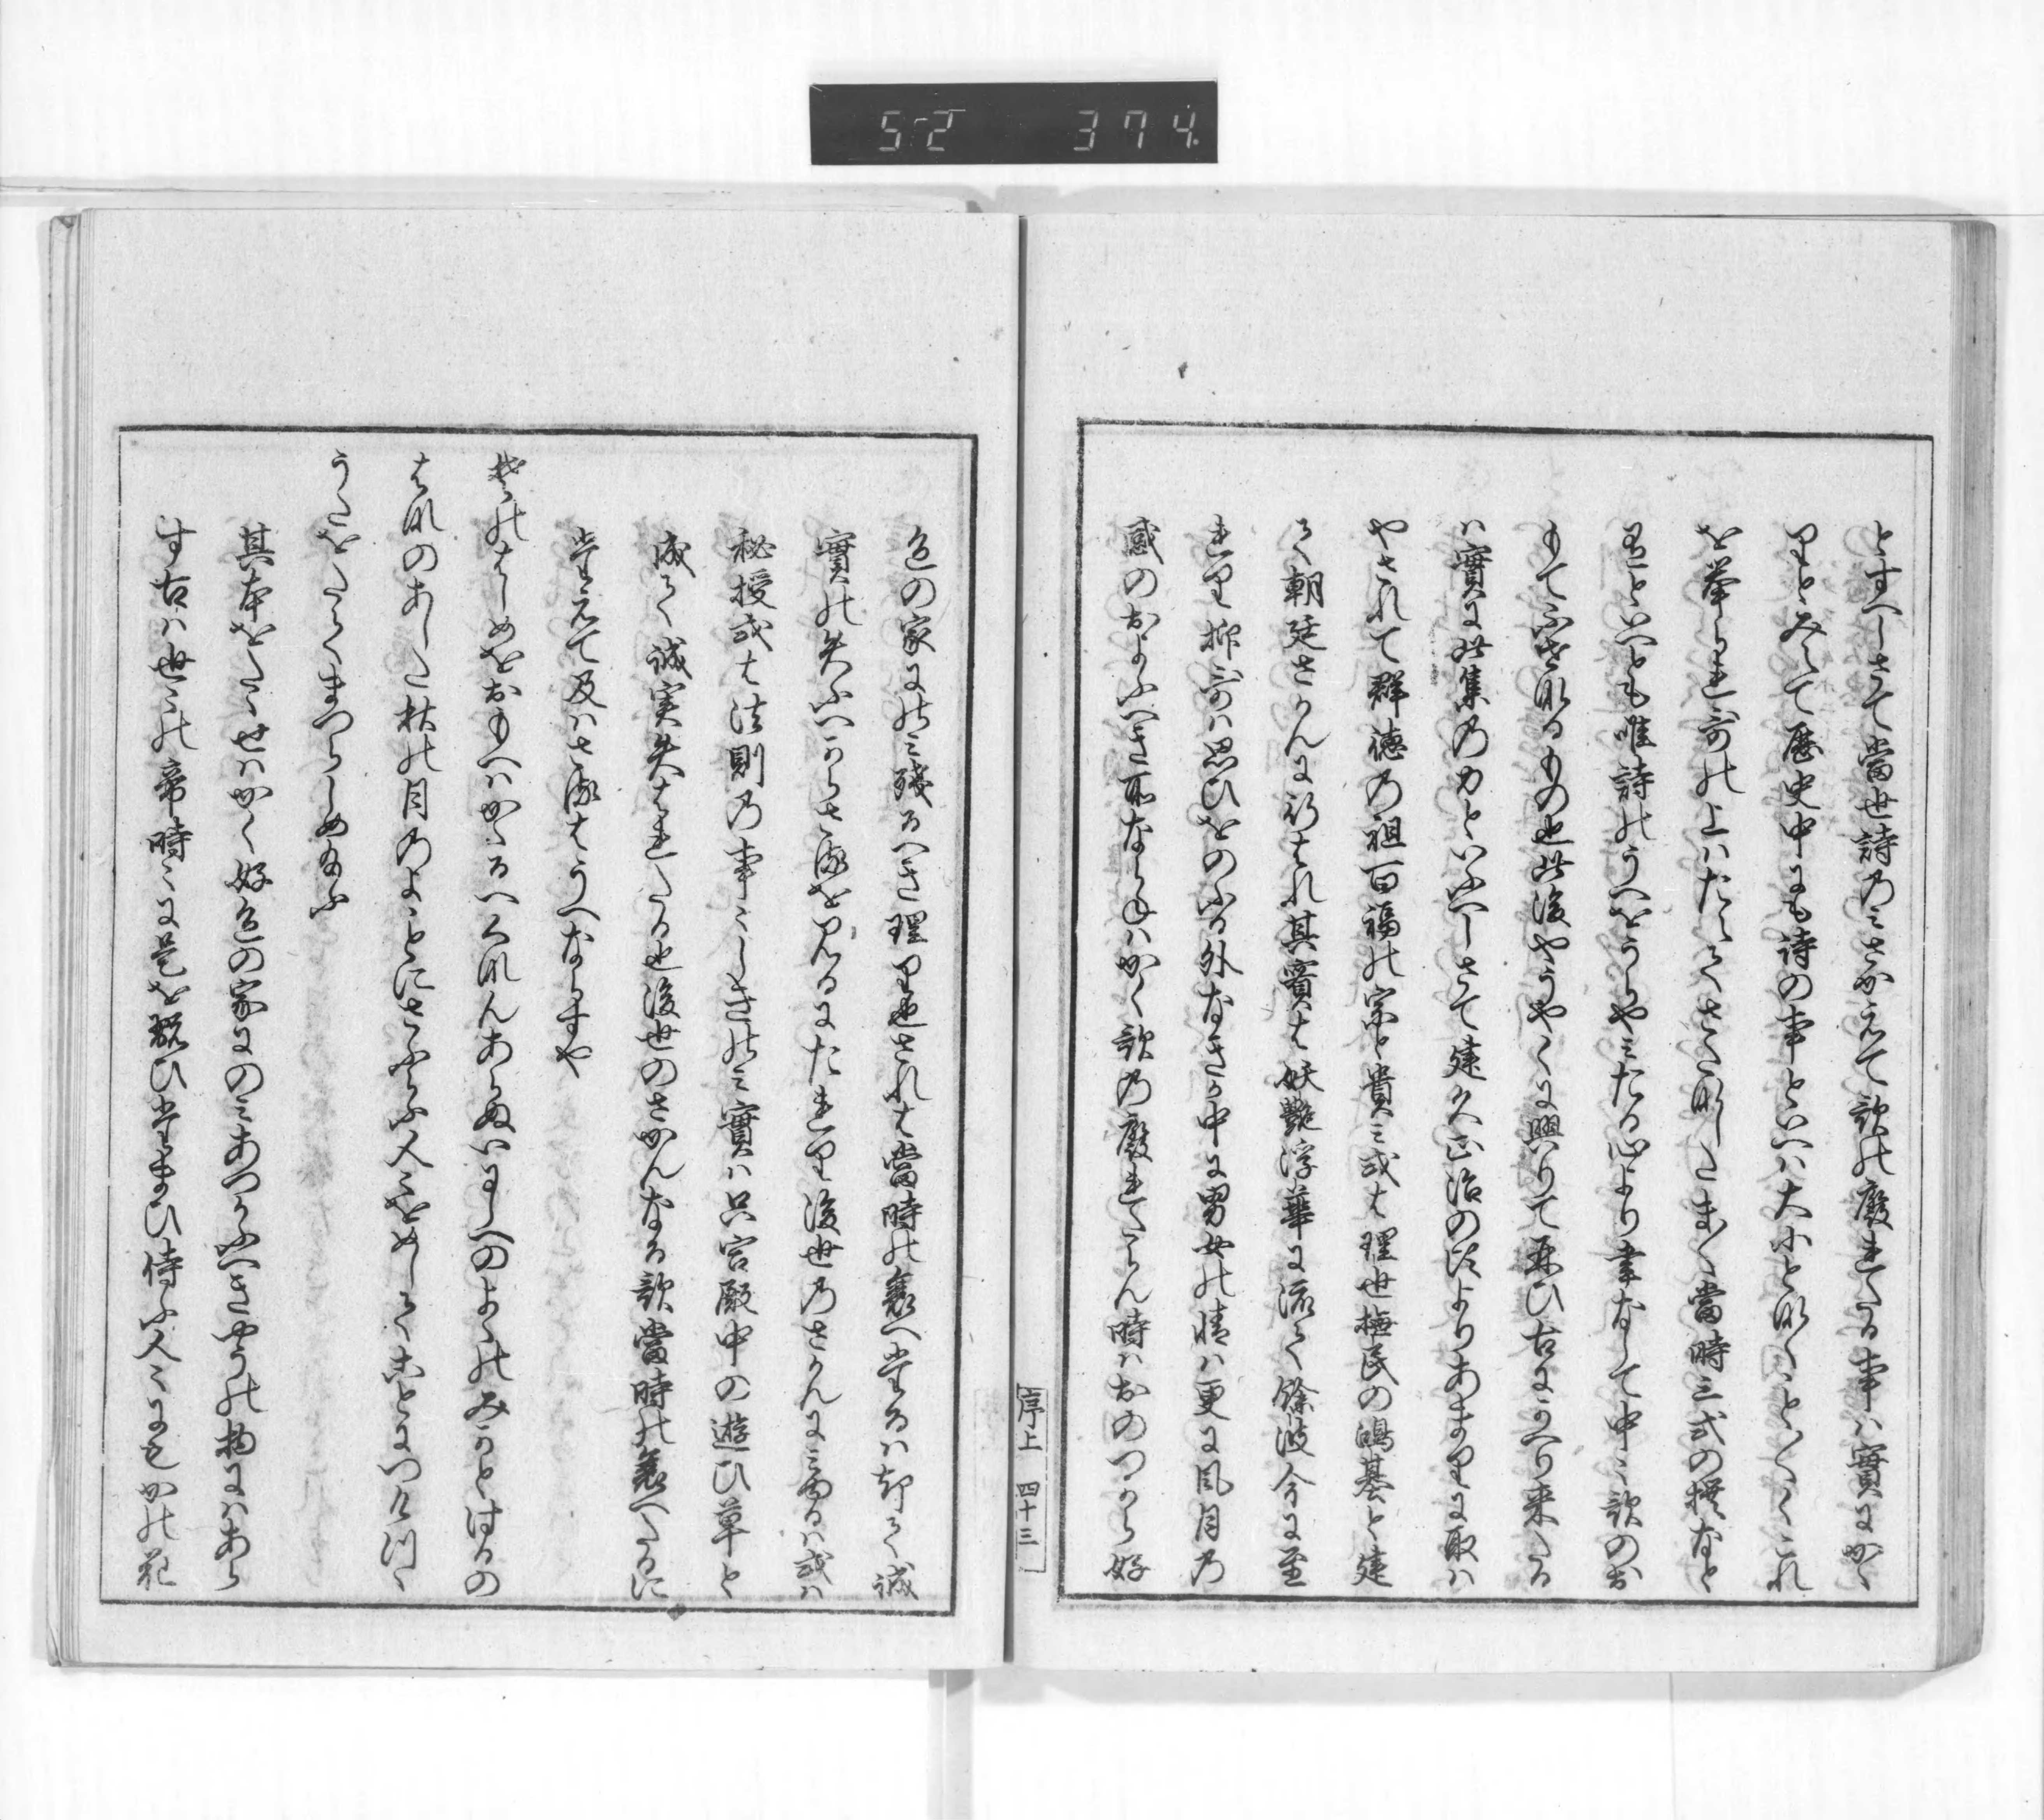 52 374.
とすへしさて當世詩乃ミさかえて歌の廢れたる事ハ實にかく
りとみえて歴史中にも詩の事といへハ大小となくことことくこれ
を挙られ哥の上ハたえてさたなしたまたま當時三式の撰なと
りといへとも唯詩のうへをうらやミたる心より事なりて中々歌のお
もてふせなるもの也此後やうやくに興りて再ひ古にかへり来たる
ハ實に此集乃力といふへしさて建久正治の比よりあまりに取ハ
やされて群徳乃祖百福の宗と貴ミ或は理世撫民の鴻基と建
て朝廷さかんに行はれ其實は妖艶浮華に流て餘波今に至
れり抑哥ハ思ひをのふる外なきか中に男女の情ハ更に風月乃
感のおよふへき所ならねハかく歌乃廢れたらん時ハおのつから好
序上 四十三
色の家にのミ残るへき理り也されは當時の衰へたるハ却て誠
實の失ふへからさるを見るにたれり後世乃さかんにミゆるハ或ハ
秘授或は法則乃事々しきのミ實ハ只宮殿中の遊ひ草と
成て誠実失はれたる也後世のさかんなる歌當時の衰へたるに
たえて及ハさるはうへならすや
そのはしめをおもへハかかるへくなんあらぬいにしへのよよのみかとはるの
はなのあした秋の月のよことにさふらふ人々をめしてことにつけつつ
うたをたてまつらしめ給ふ
其本をたとせハかく好色の家にのミあつかふへきやうの物にハあら
す古ハ世々の帝時々に是を翫ひたまひ侍ふ人々にもかの花